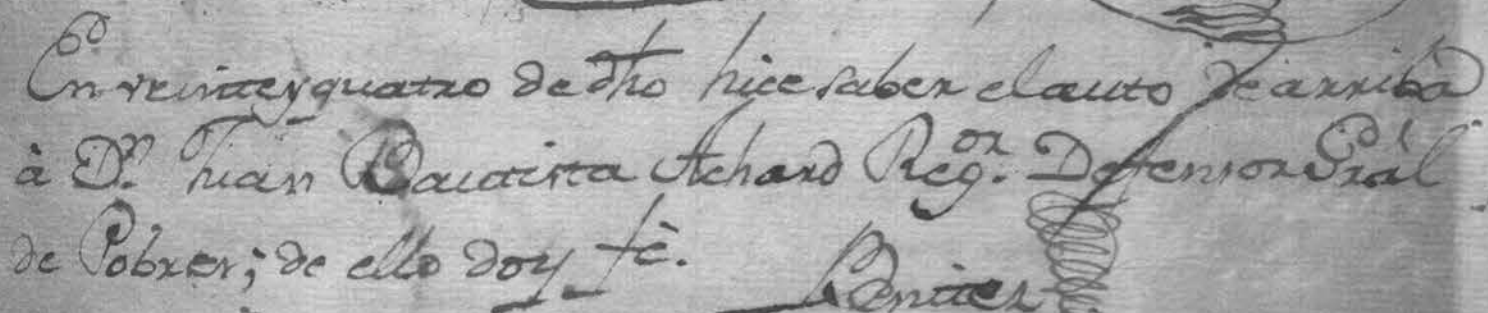 En veinte y quatro de dho hice saber el auto de arriba
à D.n Juan Bautista Achard Reg.or Defensor Grâl
de Pobres; de ello doy fè.
Benitez